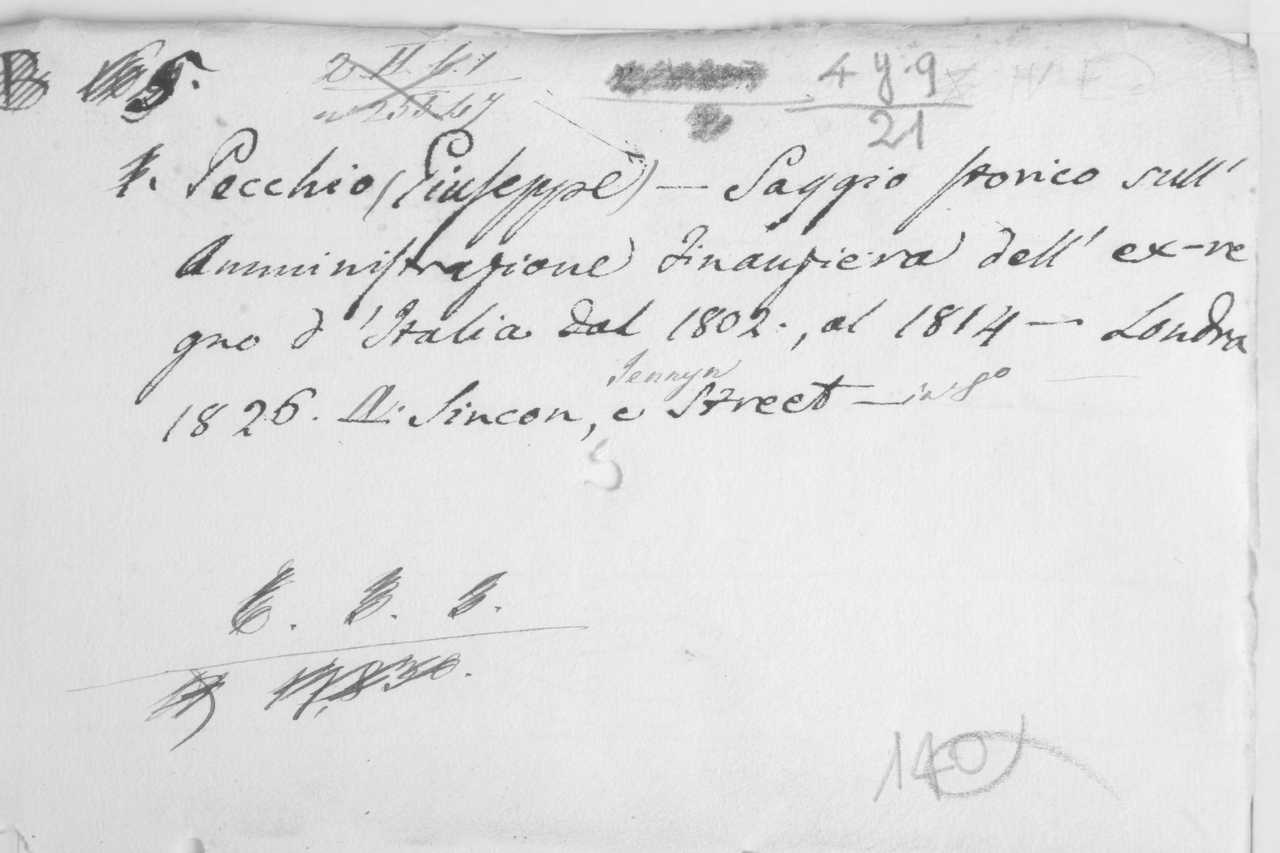 4 y. 9
21
Pecchio (Giuseppe) — Saggio storico sull'
Amministrazione finanziera dell' ex-re
gno d'Italia dal 1802., al 1814 — Londra
Jermyn
1826. Sincon, e Street — in 8º
140